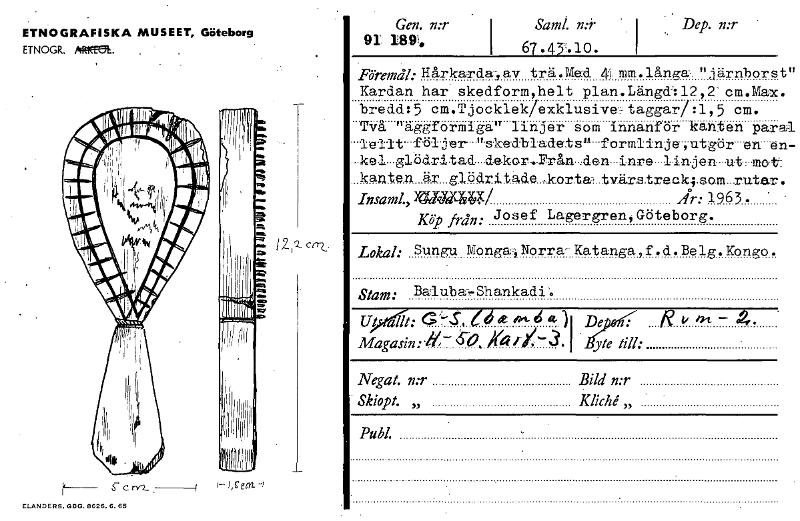 ETNOGRAFISKA MUSEET, Göteborg
ETNOGR. ARKEOL.
12,2 cm.
5 cm
1,5 cm
ELANDERS, GBG. 8626. 6. 65
Gen. n:r Saml. n:r Dep. n:r
91 189. 67.43.10.
Föremål: Hårkarda,av trä.Med 4 mm.långa "järnborst"
Kardan har skedform,helt plan.Längd:12,2 cm.Max.
bredd:5 cm.Tjocklek/exklusive taggar/:1,5 cm.
Två "äggformiga" linjer som innanför kanten paral
lellt följer "skedbladets" formlinje,utgör en en-
kel glödritad dekor.Från den inre linjen ut mot
kanten är glödritade korta tvärstreck;som rutar.
Insaml., / År: 1963.
Köp från: Josef Lagergren,Göteborg.
Lokal: Sungu Monga,Norra Katanga,f.d.Belg.Kongo.
Stam: Baluba-Shankadi.
Utställt: G-S. (bamba) Depon: Rvm-2.
Magasin: H-50. Kart.-3. Byte till:
Negat. n:r Bild n:r
Skiopt. „ Kliché „
Publ.